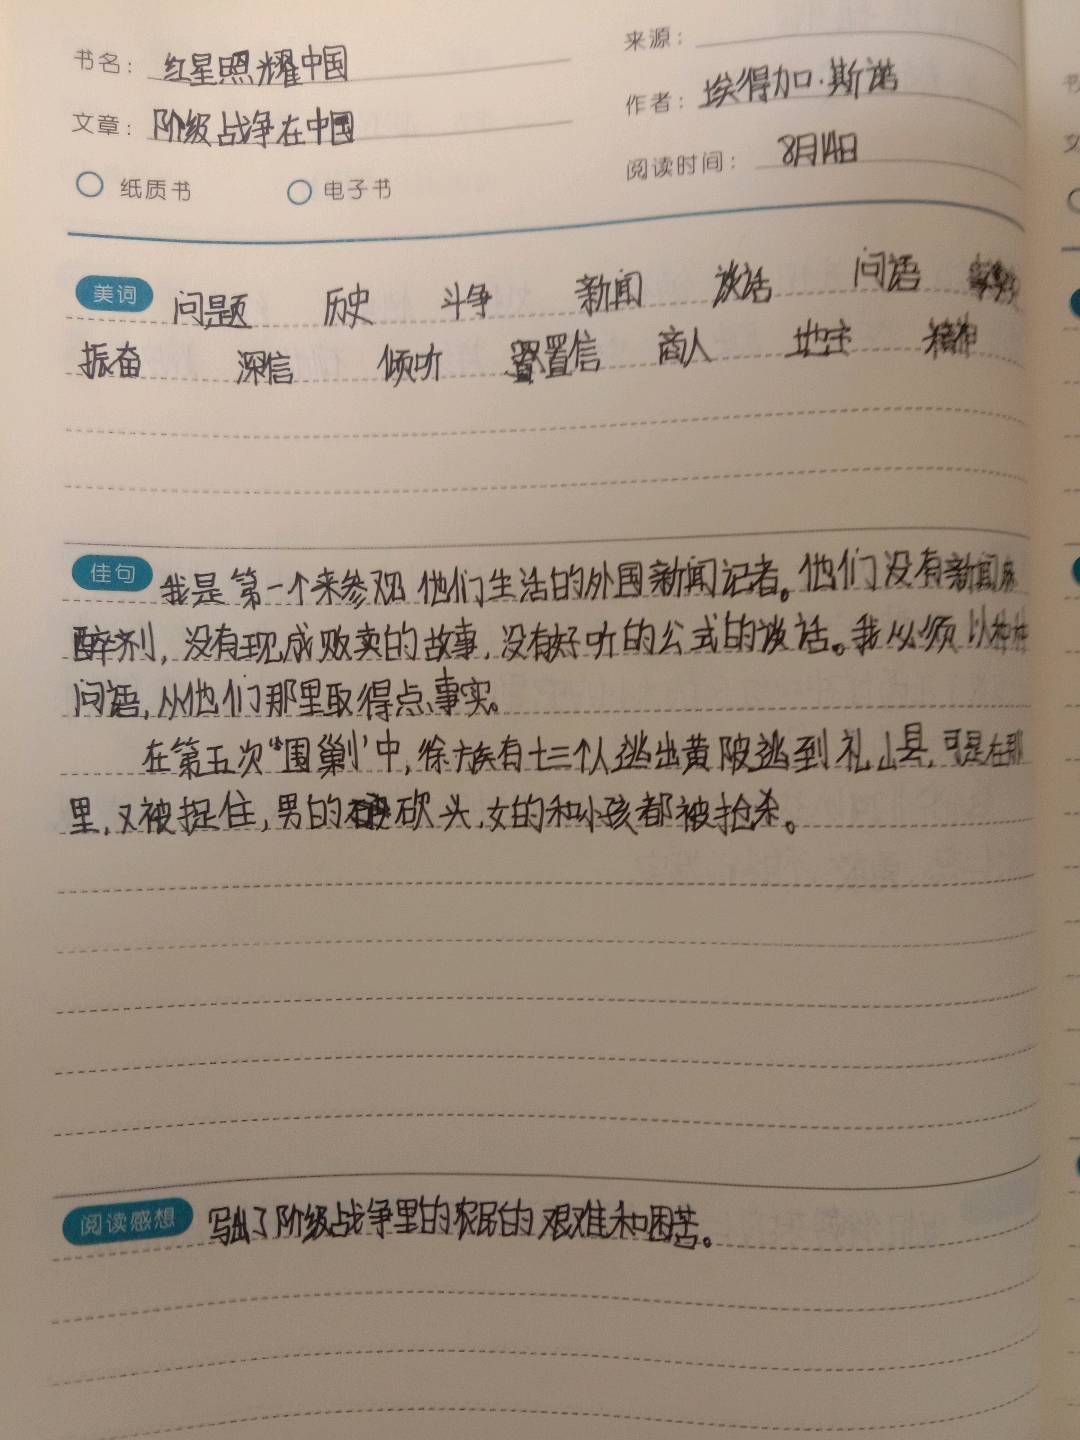 书名： 红星照耀中国
来源：
文章： 阶级战争在中国
作者： 埃得加·斯诺
纸质书 电子书
阅读时间： 8月14日
美词 问题 历史 斗争 新闻 谈话 问语
振奋 深信 倾听 置信 商人 地主 精神
佳句 我是第一个来参观他们生活的外国新闻记者。他们没有新闻麻
醉剂，没有现成贩卖的故事，没有好听的公式的谈话。我必须以种种
问语，从他们那里取得点事实。
在第五次“围剿”中，徐族有十三个人逃出黄陂逃到礼山县，可是在那
里，又被捉住，男的砍头，女的和小孩都被抢杀。
阅读感想 写出了阶级战争里的农民的艰难和困苦。